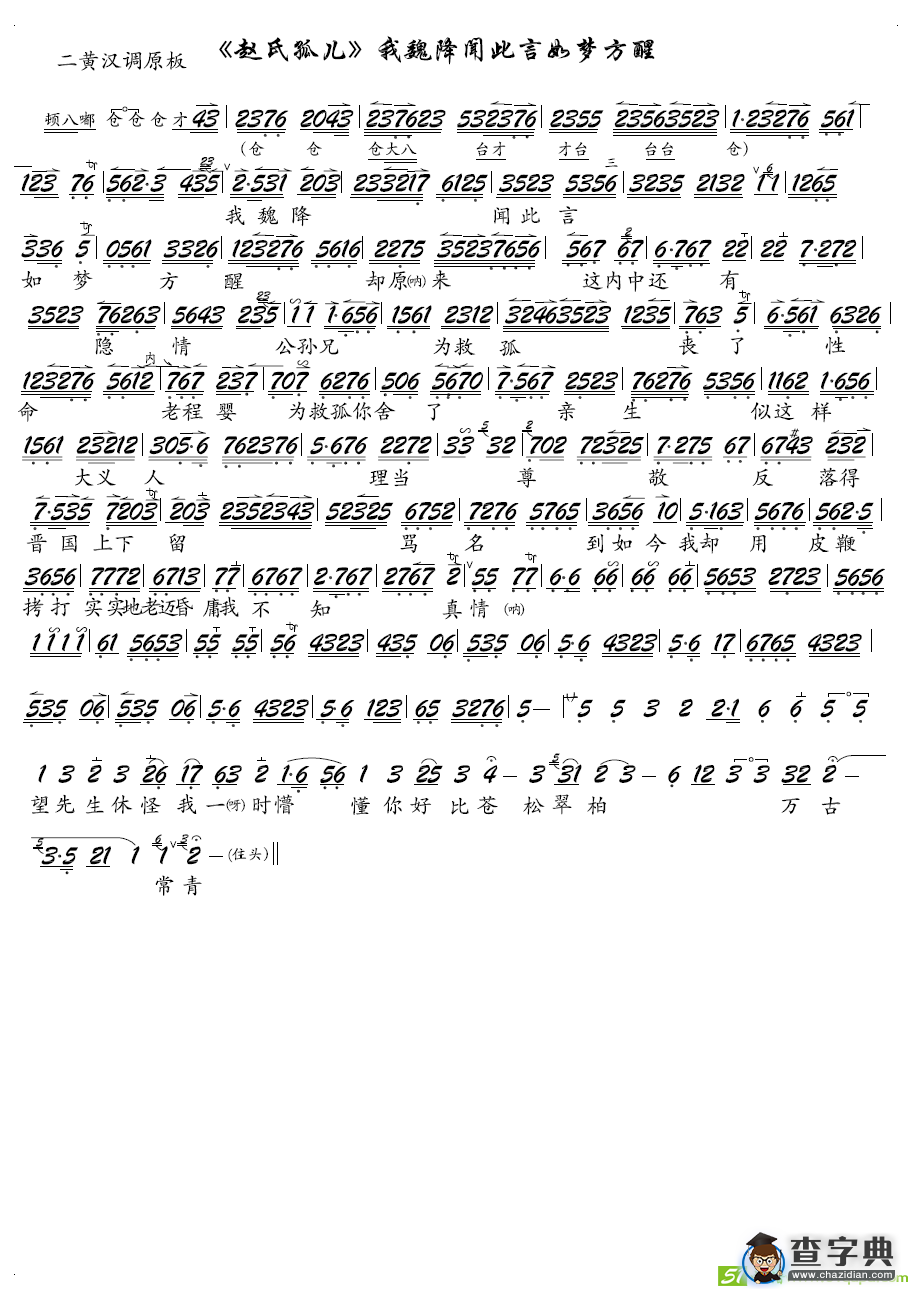 《赵氏孤儿》我魏降闻此言如梦方醒
二黄汉调原板
顿八嘟 仓 仓 仓 才 43 | 2376 2043 | 237623 532376 | 2355 23563523 | 1·23276 561 |
(仓 仓 仓大八 台才 才台 台台 仓)
123 76 | 562·3 435 | 2·531 203 | 233217 6125 | 3523 5356 | 3235 2132 11 | 1265
我魏降 闻此言
336 5 | 0561 3326 | 123276 5616 | 2275 35237656 | 567 67 | 6·767 22 | 22 7·272 |
如梦 方 醒 却原(呐)来 这内中还 有
3523 76263 | 5643 235 | 11 1·656 | 1561 2312 | 32463523 1235 | 763 5 | 6·561 6326 |
隐 情 公孙兄 为救 孤 丧 了 性
内
123276 5612 | 767 237 | 707 6276 | 506 5670 | 7·567 2523 | 76276 5356 | 1162 1·656 |
命 老程 婴 为救孤你舍 了 亲 生 似这 样
1561 23212 | 305·6 762376 | 5·676 2272 | 33 32 | 702 72325 | 7·275 67 | 6743 232 |
大义 人 理当 尊 敬 反 落得
7·535 7203 | 203 2352343 | 52325 6752 | 7276 5765 | 3656 10 | 5·163 | 5676 | 562·5 |
晋国上下 留 骂 名 到如今我却 用 皮鞭
3656 | 7772 | 6713 | 77 | 6767 | 2·767 | 2767 2 | 55 77 | 6·6 66 | 66 66 | 5653 2723 | 5656
拷打 实实地老迈昏 庸我 不 知 真情(呐)
1111 | 61 5653 | 55 55 | 56 4323 | 435 06 | 535 06 | 5·6 4323 | 5·6 17 | 6765 4323 |
535 06 | 535 06 | 5·6 4323 | 5·6 123 | 65 3276 | 5— | 5 5 3 2 2·1 6 6 5 5
1 3 2 3 26 17 63 2 1·6 56 1 3 25 3 4— 3 31 2 3— 6 12 3 3 32 2—
望先生休怪我一(呀)时懵 懂你好比苍松翠柏 万古
3·5 21 1 1 2 —(住头)‖
常青
查字典
www.chazidian.com